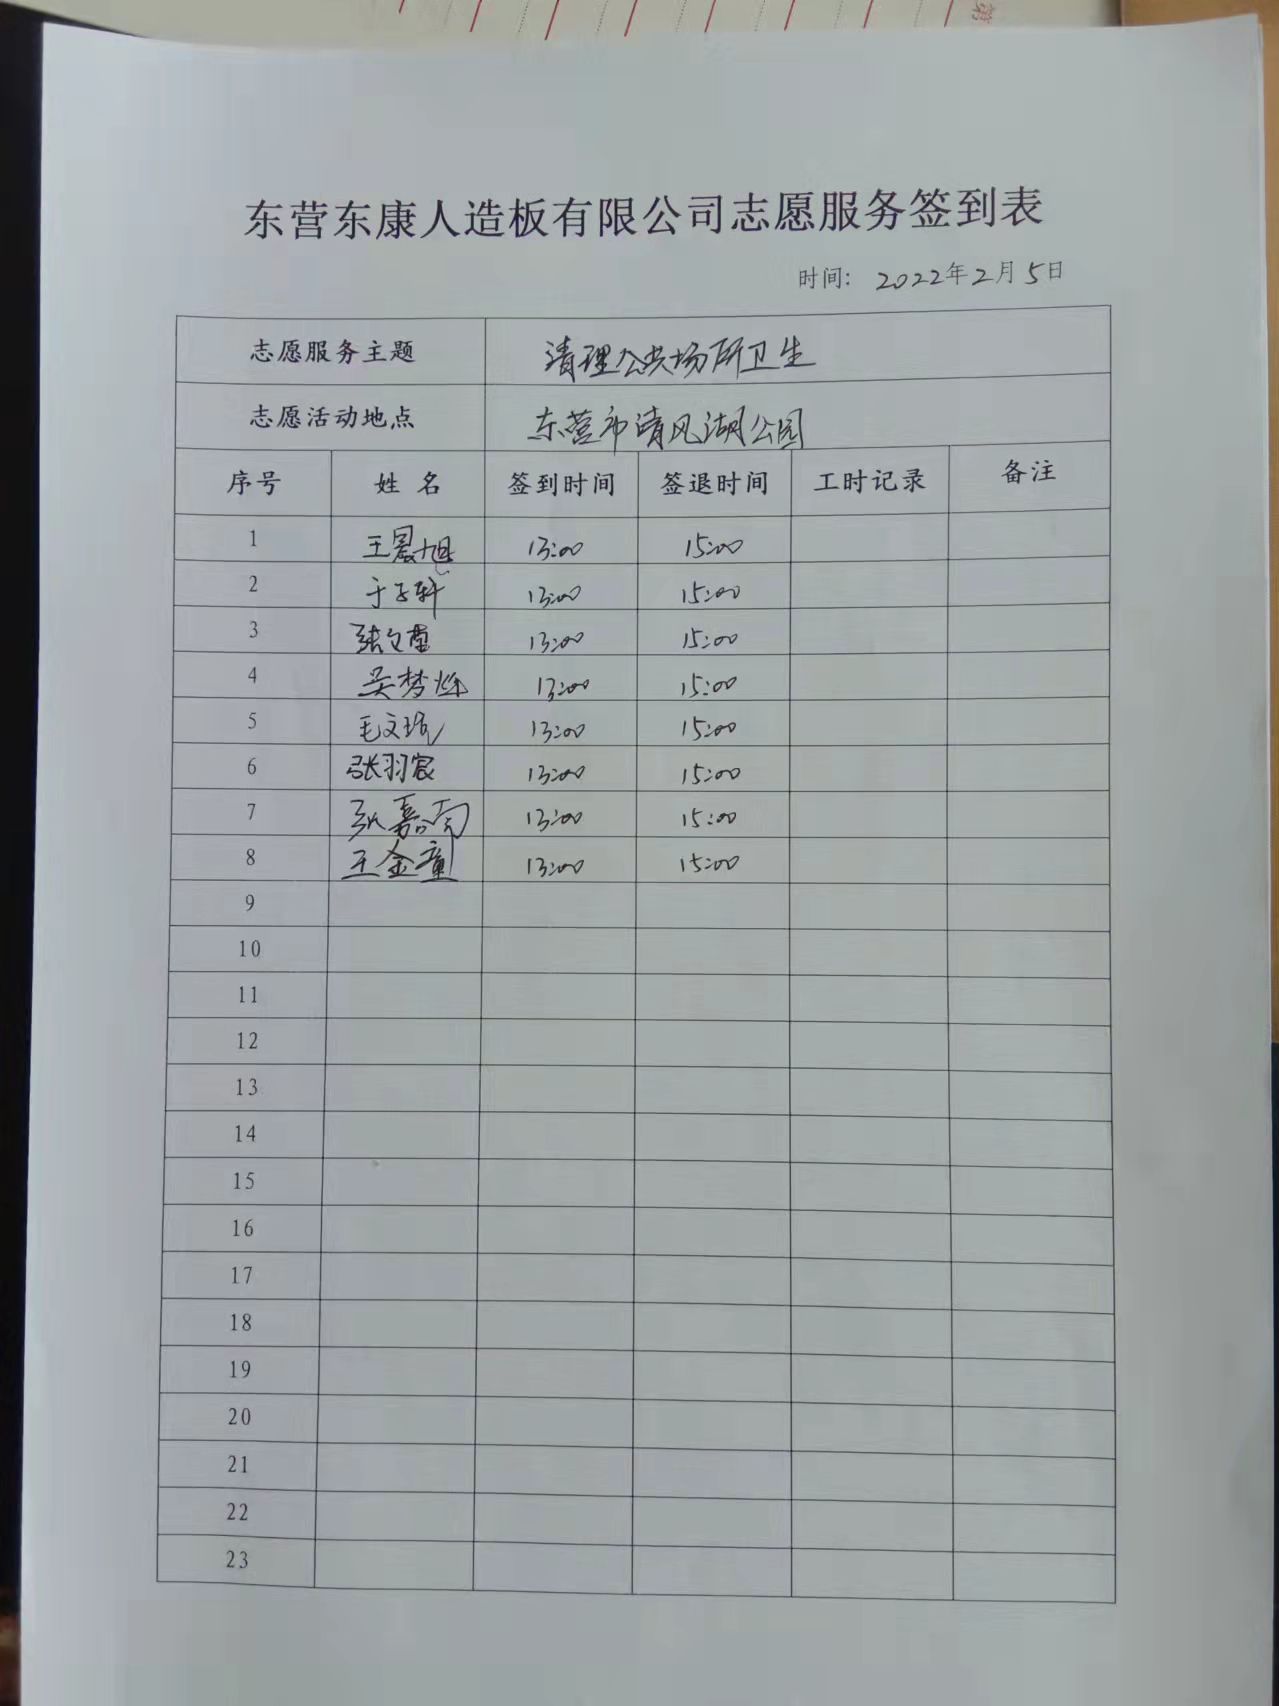 东营东康人造板有限公司志愿服务签到表
时间: 2022年2月5日
志愿服务主题 清理公共场所卫生
志愿活动地点 东营市清风湖公园
序号 姓名 签到时间 签退时间 工时记录 备注
1 王晨旭 13:00 15:00
2 于子轩 13:00 15:00
3 张文 13:00 15:00
4 吴梦 13:00 15:00
5 毛文 13:00 15:00
6 张羽宸 13:00 15:00
7 张嘉 13:00 15:00
8 王金童 13:00 15:00
9
10
11
12
13
14
15
16
17
18
19
20
21
22
23